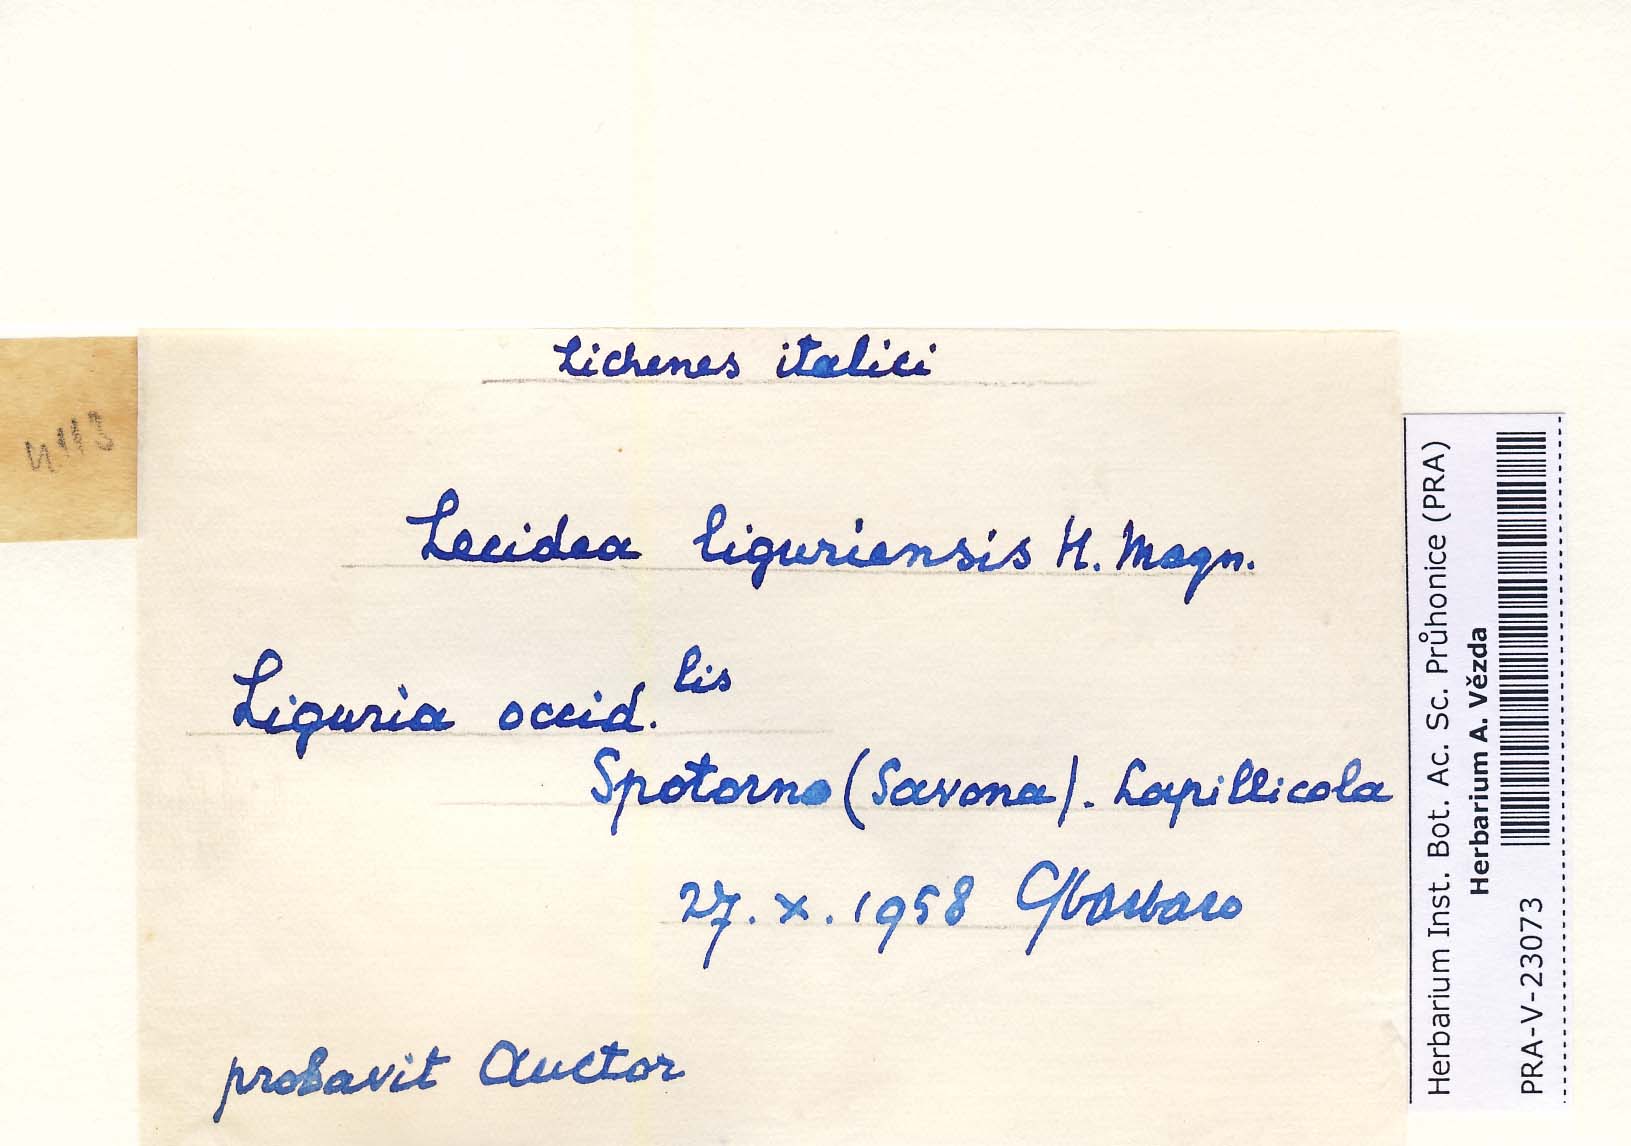 Lichenes italici
4113
Lecidea liguriensis H. Magn.
Liguria occid.lis
Spotorno (Savona). Lapillicola
27. X. 1958 CSbarbaro
probavit Auctor
Herbarium Inst. Bot. Ac. Sc. Průhonice (PRA)
Herbarium A. Vězda
PRA-V-23073